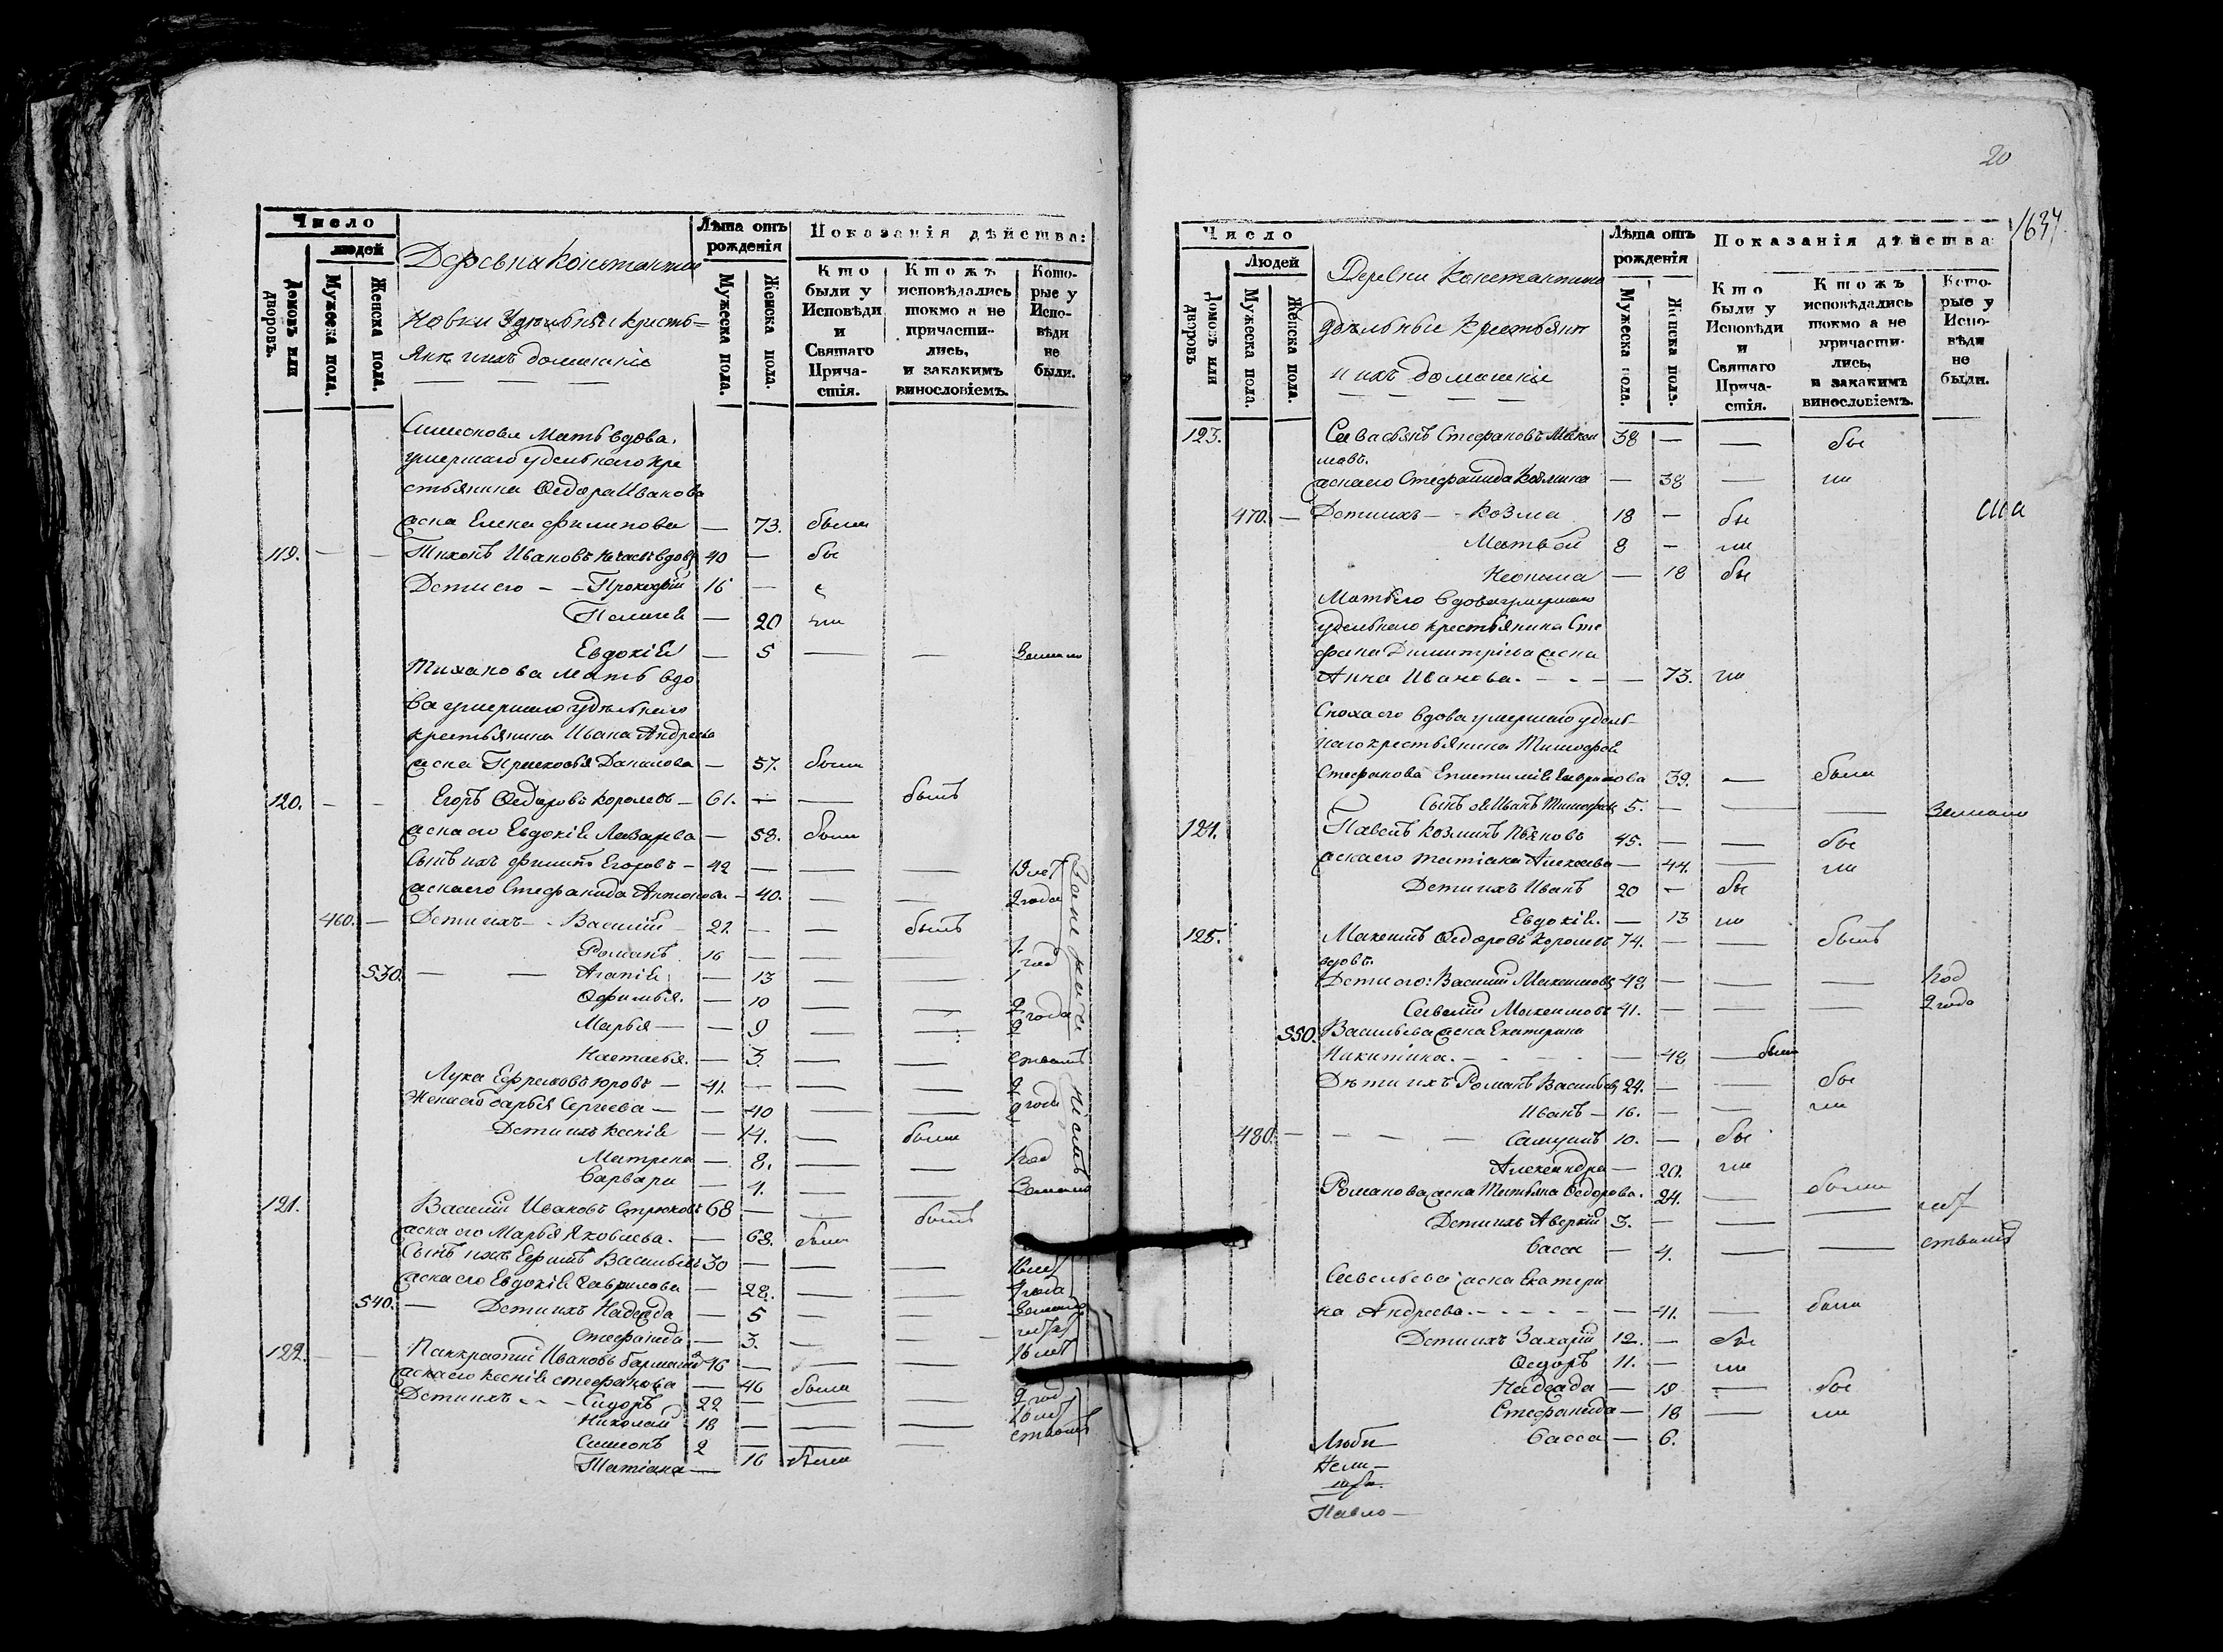 Число
людей
Домовъ или дворовъ.
Мужеска пола.
Женска пола.
Деревни Константи
новки Удѣльные кресть=
яне и ихъ домашніе
Лѣта отъ рожденія
Мужеска пола.
Женска пола.
Показанія дѣйства:
Кто были у Исповѣди и Святаго Прича-стія.
Ктожъ исповѣдались токмо а не причасти-лись, и закакимъ винословіемъ.
Кото-рые у Испо-вѣди не были.
Симеонова Мать вдова
умершаго удельнаго кре
стьянина Ѳедора Иванова
жена Елена Филипова — 73. была
119. — — Тихонъ Ивановъ вдовъ 40 — бы
Дети его - - Прокофій 16 —
Пелагея — 20 ли
Евдокія — 5 — — Замало
Тиханова Мать вдо
ва умершаго удѣльнаго
крестьянина Ивана Андреева
жена Прасковья Данилова — 57. была
120. — — Егоръ Ѳедоровъ Королевъ — 61. — — былъ
жена его Евдокія Лазарева — 58. была
Сынъ ихъ Филипъ Егоровъ — 42 — — — лѣт
жена его Стефанида Антонова — 40. — — 2 года
460. — Дети ихъ - - Василій 22 — — былъ
Романъ 16 — — — 1 год
530. — — Агапія — 13 — — 1
Ѳофимья. — 10 — — 2 года
Марья — — 9 — — 2
Настасья. — 3. — — ством
Лука Ефремовъ Юровъ — 41. — — — 2
Жена его Дарья Сергеева — — 40 — — 2 года
Дети ихъ Ксенія — 14. — была
Матрена — 8. — — 1 год
Варвара — 4. — — Замало
121. Василий Ивановъ Стрюковъ 68 — — былъ
жена его Марья Яковлева. — 68. была
Сынъ ихъ Ефимъ Васильевъ 30 — — —
жена его Евдокія Гаврилова — 28. — —
540. — Дети ихъ Надежда — 5 — —
Стефанида — 3. — —
122. — — Панкратий Ивановъ 46 — — —
жена его Ксенія Стефанова — 46 была
Дети ихъ - - Сидоръ 22 — — — 2 год
Николай 18 — — —
Симеонъ 2 — — — ством
Татіана — 16 была
20
1637
Число
Людей
Домовъ или дворовъ
Мужеска пола.
Женска пола.
Деревни Константино
удѣльные крестьяне
и ихъ домашніе
Лѣта отъ рожденія
Мужеска пола.
Женска пола.
Показанія дѣйства
Кто были у Исповѣди и Святаго Прича-стія.
Ктожъ исповѣдались токмо а не причасти-лись, и закакимъ винословіемъ.
Кото-рые у Испо-вѣди не были.
123. Савасьянъ Стефановъ Макси 38 — — бы
мовъ.
жена его Стефанида Козмина — 38 — ли
470. — Дети ихъ - - Козма 18 — бы
Матвѣй 8 — ли
Неонила — 18 бы
Мать его вдова умершаго
удельнаго крестьянина Сте
фана Димитріева жена
Анна Иванова. — 73. ли
Сноха его вдова умершаго удель
наго крестьянина Тимофея
Стефанова Епистимія Гаврилова 39. — была
Сынъ ея Иванъ Тимофеевъ 5. — — — Замало
124. Павелъ Козминъ Пьяновъ 45. — — бы
жена его Татіана Алексеева — 44. — ли
Дети ихъ Иванъ 20 — бы
Евдокія. — 13 ли
125. Максимъ Ѳедоровъ Королевъ 74. — — былъ
вдовъ.
Дети его: Василій Максимовъ 48 — — — 1 год
Савелій Максимовъ 41. — — — 2 года
550. Васильева жена Екатерина
Никитина. — 48 — была
Дѣти ихъ Романъ Васильевъ 24. — — бы
Иванъ — 16. — — ли
480. — — — Самуилъ 10. — бы
Александра — 20. ли
Романова жена Татьяна Ѳедорова. 24. — была
Дети ихъ Аверкій 3. — — —
Васса — 4. — — ством
Савельева жена Екатери
на Андреева. — 41. — была
Дети ихъ Захарій 12. — бы
Ѳедоръ 11. — ли
Надежда — 19 — бы
Стефанида — 18 — ли
Васса — 6.